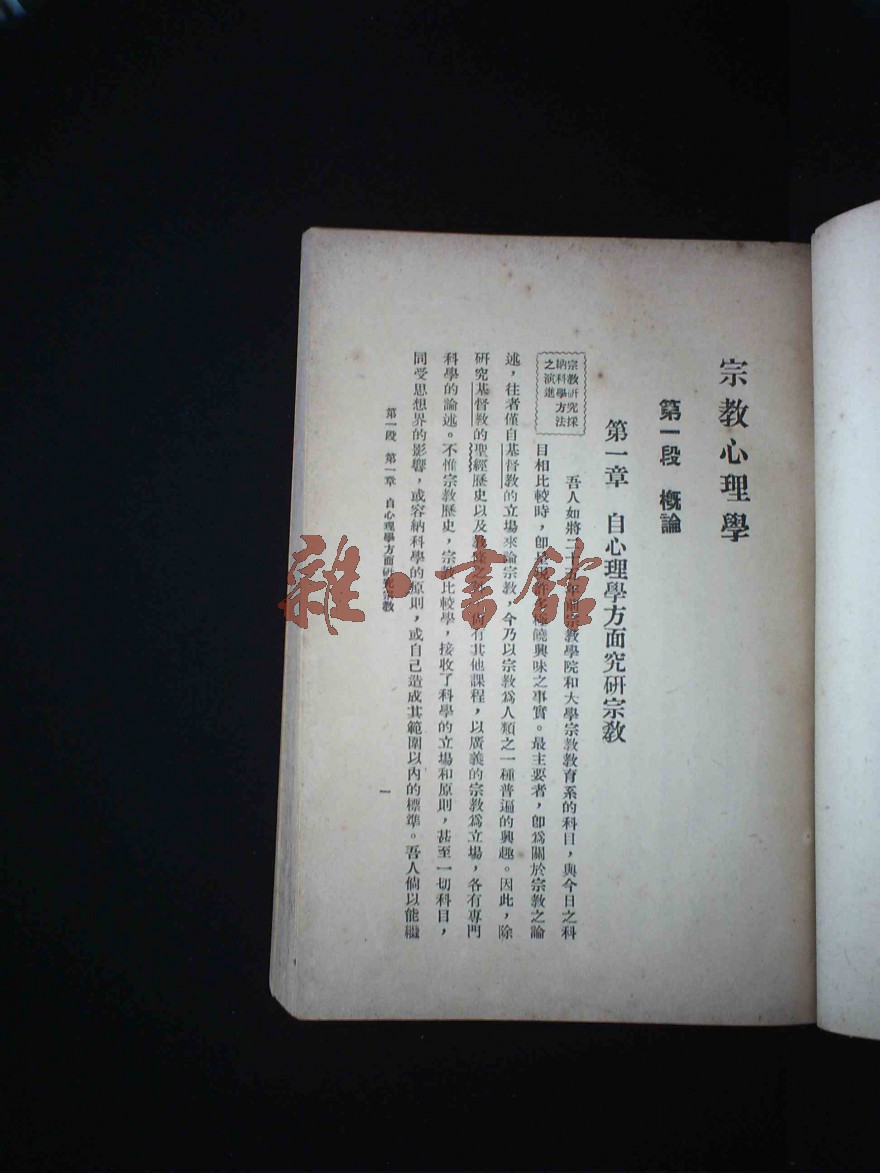 宗教心理學
第一段　概論
第一章　自心理學方面究研宗教
宗教研究採
納科學方法
之演進
吾人如將二十五年前宗教學院和大學宗教教育系的科目，與今日之科
目相比較時，即呈現許多極饒興味之事實。最主要者，即為關於宗教之論
述，往者僅自基督教的立場來論宗教，今乃以宗教為人類之一種普遍的興趣。因此，除
研究基督教的聖經歷史以及教條之外，尚有其他課程，以廣義的宗教為立場，各有專門
科學的論述。不惟宗教歷史，宗教比較學，接收了科學的立場和原則，甚至一切科目，
同受思想界的影響，或容納科學的原則，或自己造成其範圍以內的標準。吾人倘以能繼
第一段　第一章　自心理學方面研究宗教
一
雜·書館